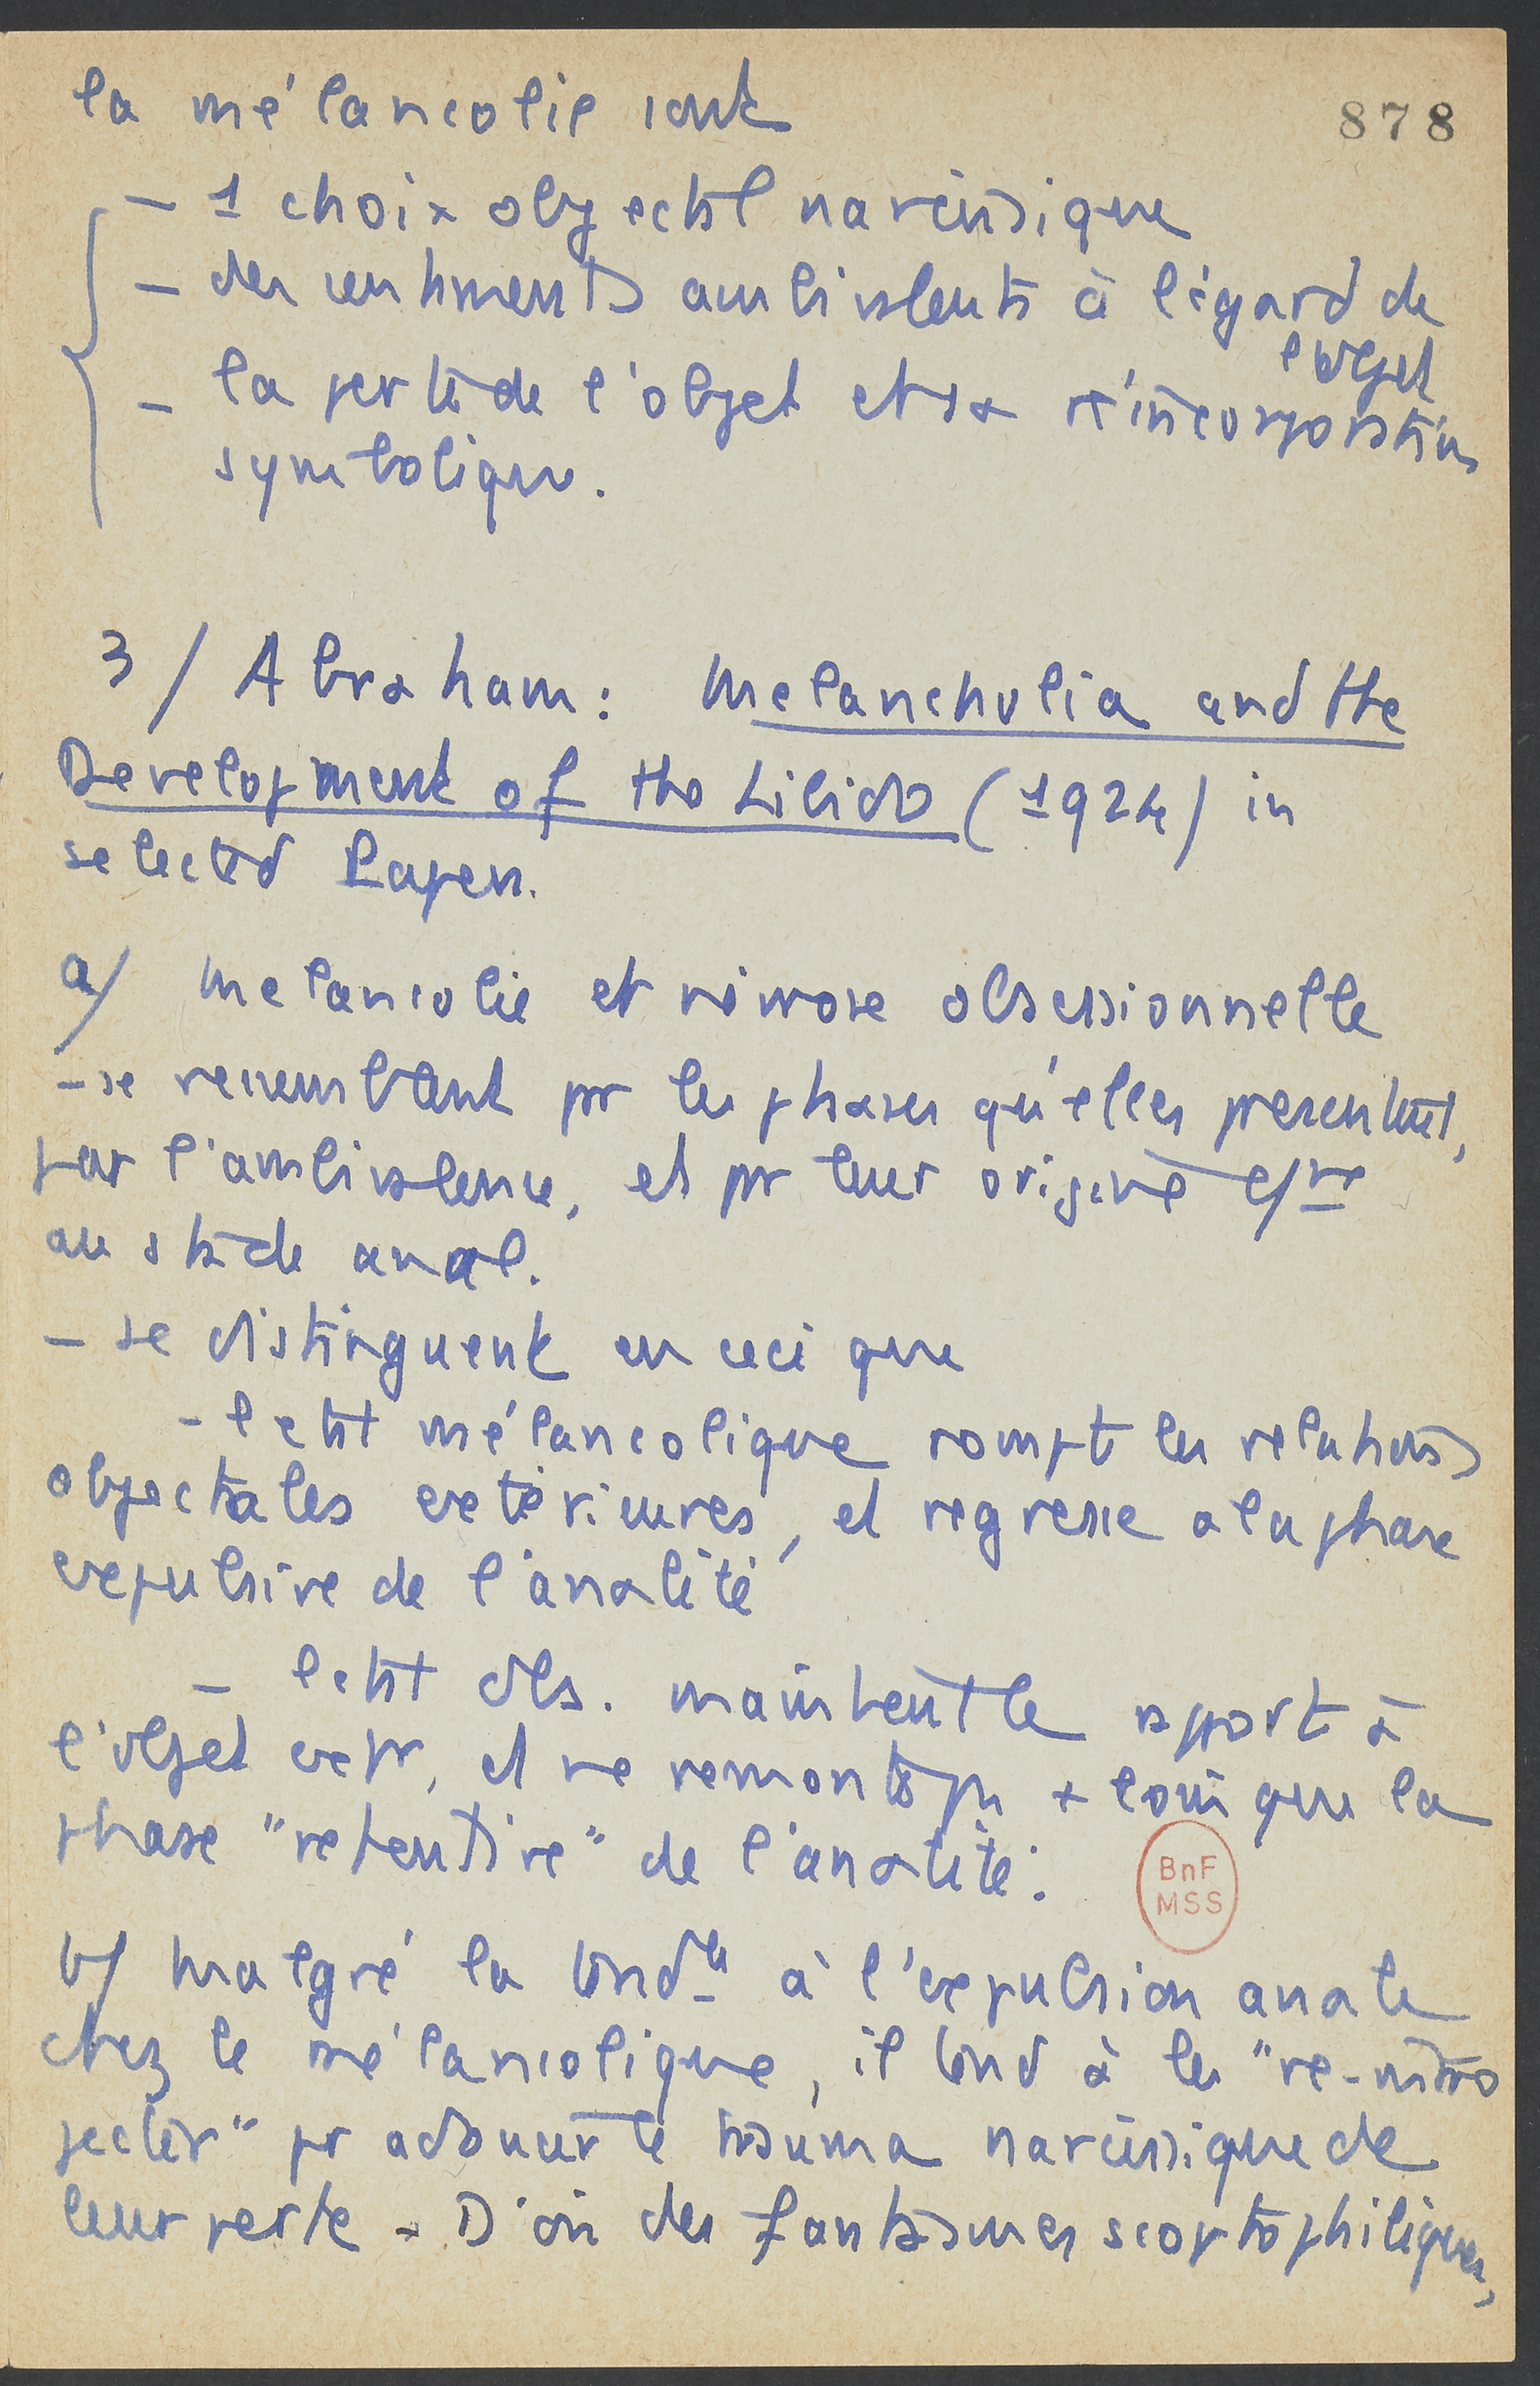 878
la mélancolie sont
- 1 choix objectal narcissique
- des sentiments ambivalents à l'égard de
l'objet
- la perte de l'objet et sa réincorporation
symbolique.
3/ Abraham : Melancholia and the
Development of the Libido (1924) in
selected Papers.
a/ Mélancolie et névrose obsessionnelle
- se ressemblent pr les phases qu'elles présentent,
par l'ambivalence, et pr leur origine
au stade anal.
- se distinguent en ceci que
- l'état mélancolique rompt les relations
objectales extérieures, et régresse à la phase
expulsive de l'analité
- l'état obs. maintient le rapport à
l'objet extr, et ne remonte pas + loin que la
phase "rétentive" de l'analité.
BnF
MSS
b/ Malgré la tendce à l'expulsion anale
chez le mélancolique, il tend à les "ré-intro
jecter" pr adoucir le trauma narcissique de
leur perte - D'où des fantasmes scoptophiliques,